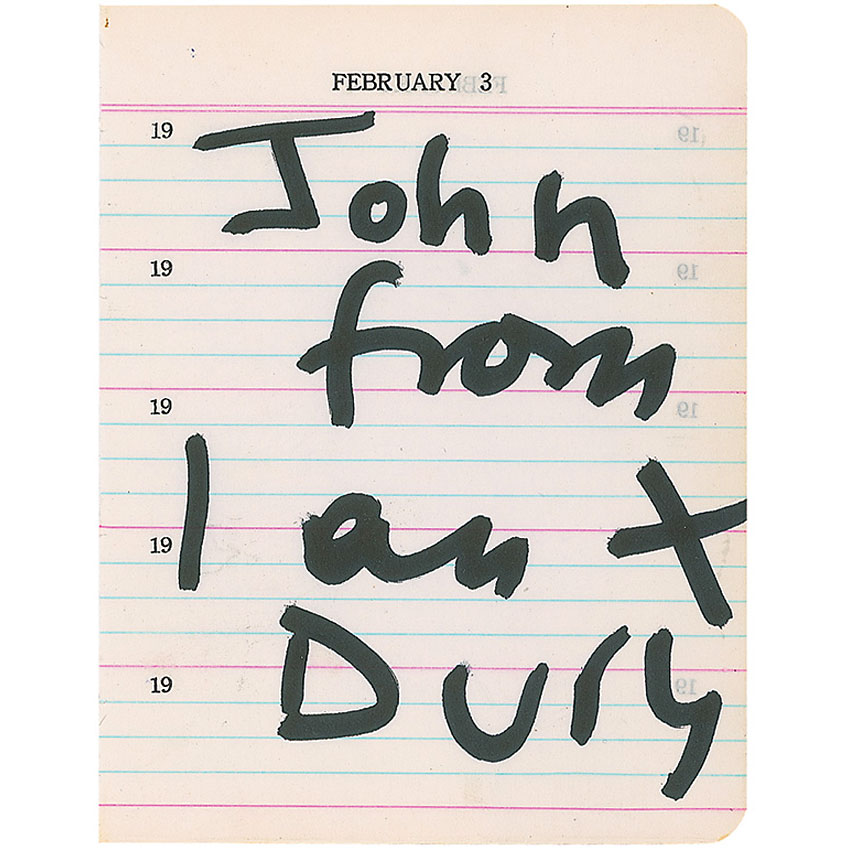 FEBRUARY 3
19
John
19
from
19
Ian X
19
Dury
19